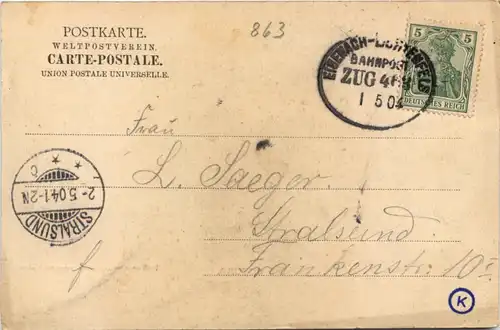 POSTKARTE.
WELTPOSTVEREIN.
CARTE-POSTALE.
UNION POSTALE UNIVERSELLE.
863
BAHNPOST
ZUG
1 5 04
5 5
DEUTSCHES REICH
Frau
L. Saeger.
Stralsund
Frankenstr. 10
f
STRALSUND
2-5.04.1-2N
* * c
K